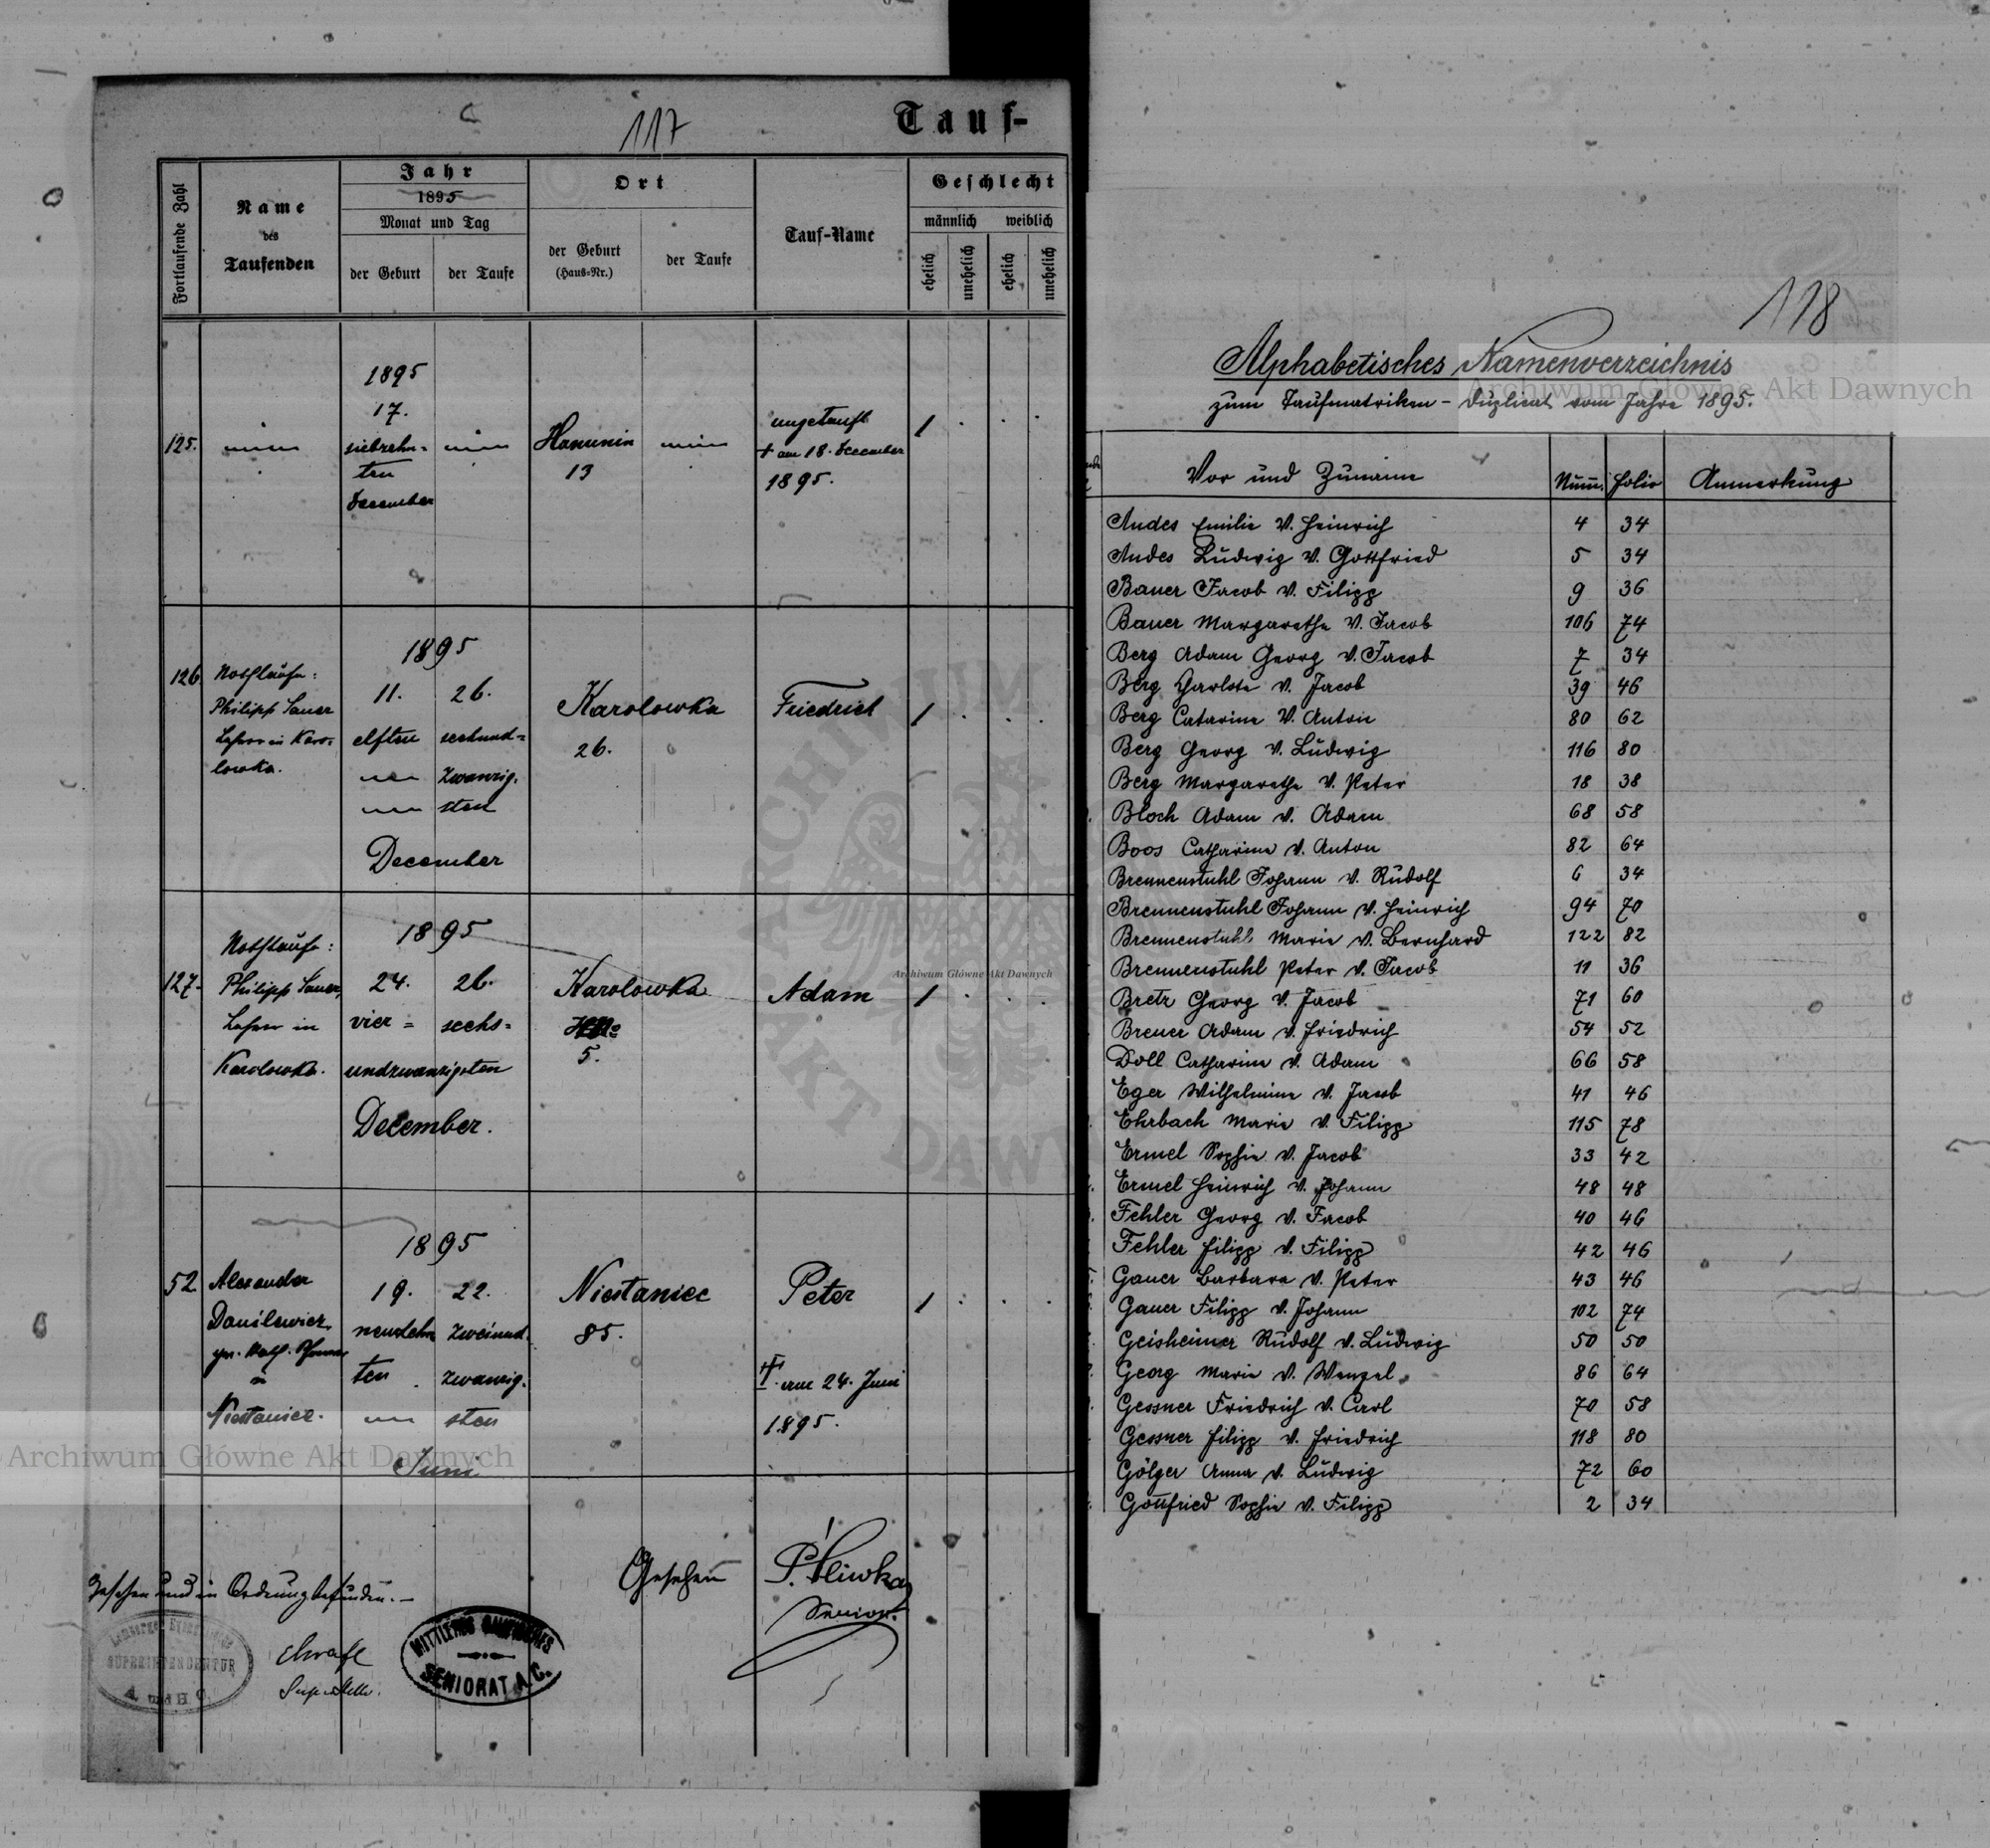 117
Tauf-
Fortlaufende Zahl
Name
des
Taufenden
Jahr
1895
Monat und Tag
der Geburt
der Taufe
Ort
der Geburt
(Haus-Nr.)
der Taufe
Tauf-Name
Geschlecht
männlich
weiblich
ehelich
unehelich
ehelich
unehelich
125.
1895
17.
siebzehn-
ten
December
Hanunin
13
ungetauft
+ am 18. December
1895.
1
126
Nothtaufe:
Philipp Sauer
Lehrer in Karo-
lowka.
1895
11. 26.
elften sechund-
zwanzig-
sten
December
Karolowka
26.
Friedrich
1
127.
Nothtaufe:
Philipp Sauer,
Lehrer in
Karolowka.
1895
24. 26.
vier- sechs-
undzwanzigsten
December.
Karolowka
5.
Adam
1
52
Alexander
Danilewicz
gr. kath. Pfarrer
in
Niestaniec.
1895
19. 22.
neunzehn zweiund-
ten zwanzig-
sten
Juni
Niestaniec
85.
Peter
am 24. Juni
1895.
1
Gesehen und in Ordnung befunden.
Gesehen
Senior.
SUPERINTENDENTUR
MITTLERES
SENIORAT A. C.
118
Alphabetisches Namenverzeichnis
zum Taufmatriken-Duplicat vom Jahre 1895.
Vor und Zuname Num. Folio Anmerkung
Andes Emilie v. Heinrich 4 34
Andes Ludwig v. Gottfried 5 34
Bauer Jacob v. Filipp 9 36
Bauer Margarethe v. Jacob 106 74
Berg Adam Georg v. Jacob 7 34
Berg Charlote v. Jacob 39 46
Berg Catarina v. Anton 80 62
Berg Georg v. Ludwig 116 80
Berg Margarethe v. Peter 18 38
Bloch Adam v. Adam 68 58
Boos Catharina v. Anton 82 64
Brennenstuhl Johann v. Rudolf 6 34
Brennenstuhl Johann v. Heinrich 94 70
Brennenstuhl Marie v. Bernhard 122 82
Brennenstuhl Peter v. Jacob 11 36
Bretz Georg v. Jacob 71 60
Breuer Adam v. Friedrich 54 52
Doll Catharina v. Adam 66 58
Eger Wilhelmine v. Jacob 41 46
Ehrbach Marie v. Filipp 115 78
Ermel Sophie v. Jacob 33 42
Ermel Heinrich v. Johann 48 48
Fehler Georg v. Jacob 40 46
Fehler Filipp v. Filipp 42 46
Gauer Barbara v. Peter 43 46
Gauer Filipp v. Johann 102 74
Geisheimer Rudolf v. Ludwig 50 50
Georg Marie v. Wenzel 86 64
Gessner Friedrich v. Carl 70 58
Gessner Filipp v. Friedrich 118 80
Gölger Anna v. Ludwig 72 60
Gottfried Sophie v. Filipp 2 34
Archiwum Główne Akt Dawnych
Archiwum Główne Akt Dawnych
Archiwum Główne Akt Dawnych